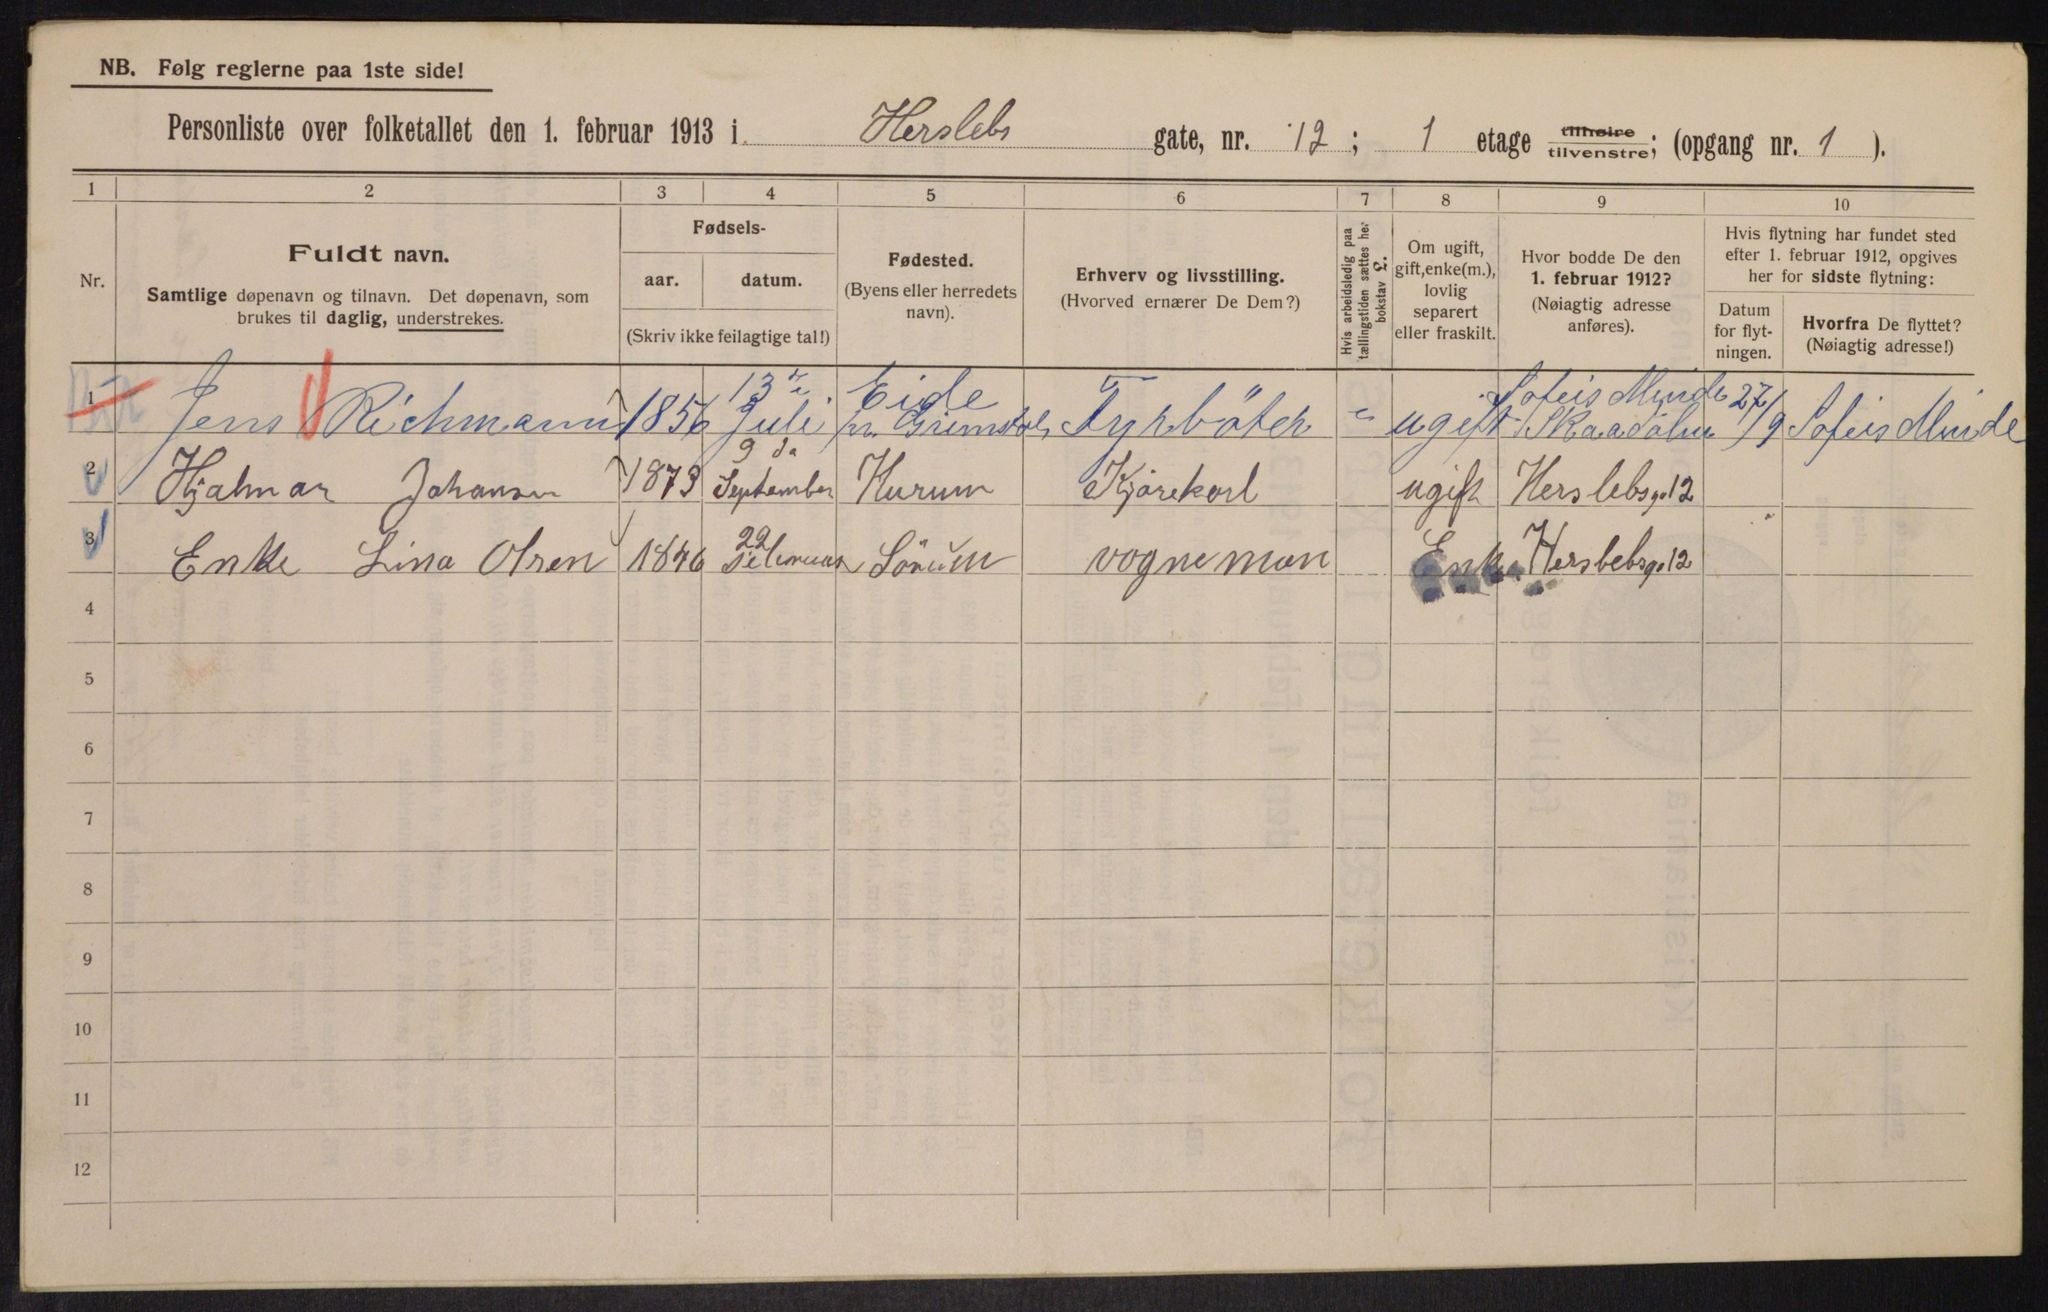 NB. Følg reglerne paa 1ste side!
Personliste over folketallet den 1. februar 1913 i Herslebs gate, nr. 12; 1 etage tilhøire tilvenstre; (opgang nr. 1).
1 2 3 4 5 6 7 8 9 10
Nr.
Fuldt navn.
Samtlige døpenavn og tilnavn. Det døpenavn, som
brukes til daglig, understrekes.
Fødsels-
aar. datum.
(Skriv ikke feilagtige tal!)
Fødested.
(Byens eller herredets
navn).
Erhverv og livsstilling.
(Hvorved ernærer De Dem?)
Hvis arbeidsledig paa
tællingstiden sættes her
bokstav L.
Om ugift,
gift, enke(m.),
lovlig
separert
eller fraskilt.
Hvor bodde De den
1. februar 1912?
(Nøiagtig adresse
anføres).
Hvis flytning har fundet sted
efter 1. februar 1912, opgives
her for sidste flytning:
Datum
for flyt-
ningen.
Hvorfra De flyttet?
(Nøiagtig adresse!)
1 Jens Richmann 1856 13 Juli Eide Fyrböter ugift Sofeis Minde 27/9 Sofeis Minde
2 Hjalmar Johansen 1873 9 September Hurum Kjørekarl ugift Herslebsg. 12
3 Enke Lina Olsen 1846 22 Februar Sörum vognman Enke Herslebsg. 12
4
5
6
7
8
9
10
11
12